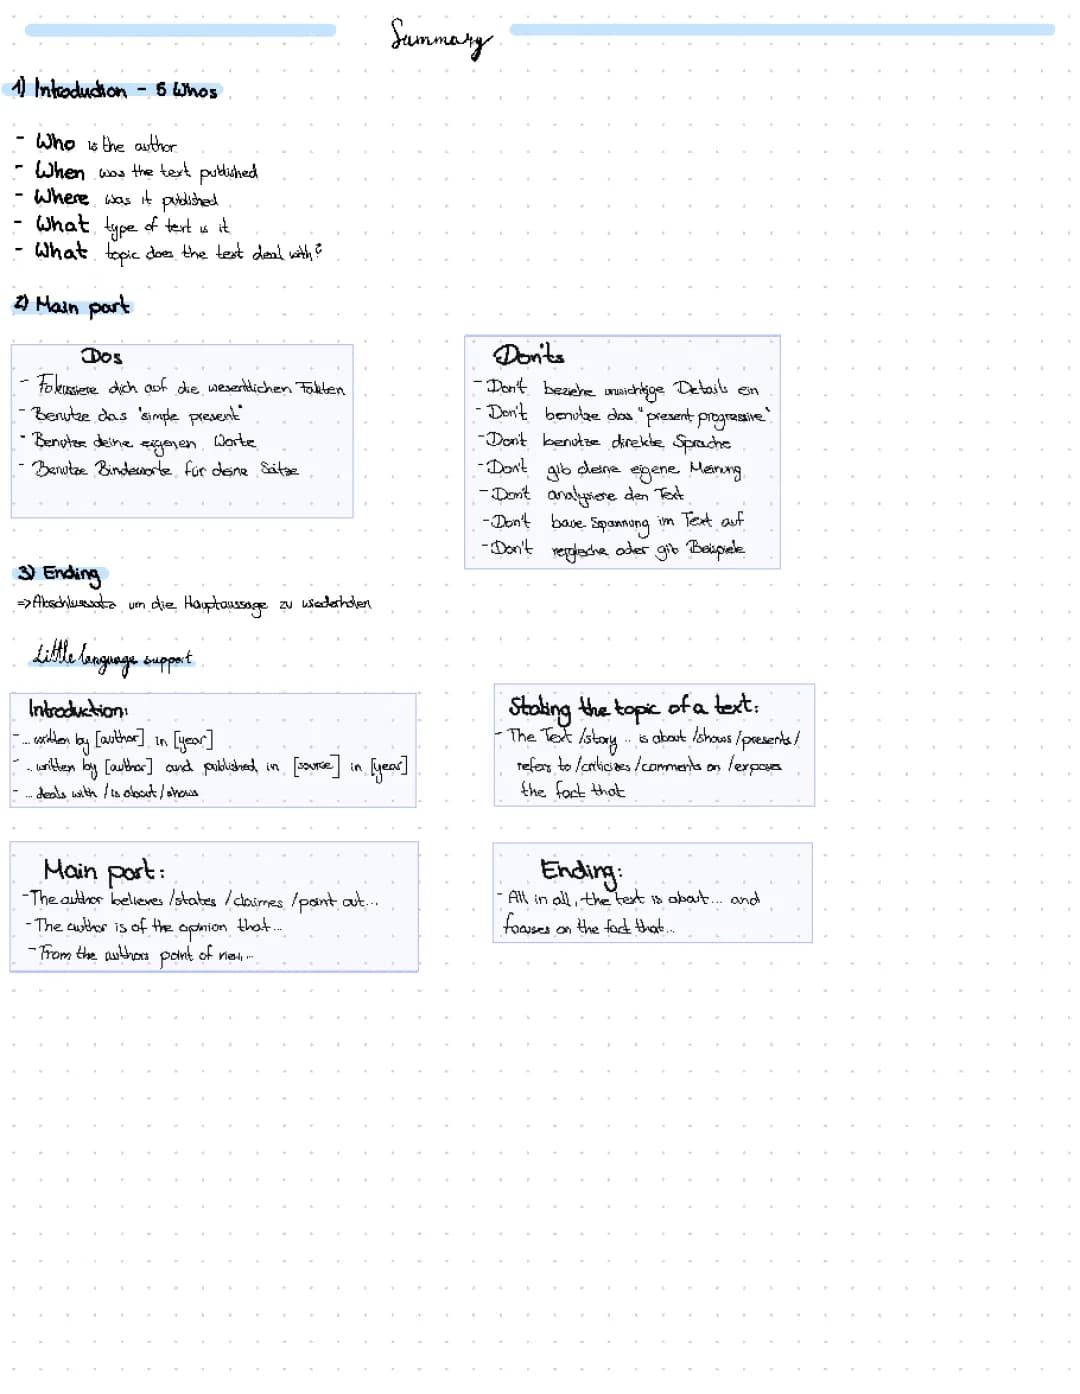 Summary
1) Introduction - 5 Whos
- Who is the author
- When was the text published
- Where was it published
- What type of text is it
- What topic does the text deal with?
2) Main part
Dos
- Fokussiere dich auf die wesentlichen Fakten
- Benutze das "simple present"
- Benutze deine eigenen Worte
- Benutze Bindeworte für deine Sätze
Don'ts
- Don't beziehe unwichtige Details ein
- Don't benutze das "present progressive"
- Don't benutze direkte Sprache
- Don't gib deine eigene Meinung
- Dont analysiere den Text
- Don't baue Spannung im Text auf
- Don't vergleiche oder gib Beispiele
3) Ending
=> Abschlusssatz um die Hauptaussage zu wiederholen
Little language support
Introduction:
- ... written by [author] in [year]
- ... written by [author] and published in [source] in [year]
- ... deals with / is about / shows
Stating the topic of a text:
- The Text /story ... is about /shows /presents /
refers to /criticizes /comments on /exposes
the fact that
Main part:
- The author believes /states /claimes /point out...
- The author is of the opinion that...
- From the authors point of view...
Ending:
- All in all, the text is about... and
focuses on the fact that...